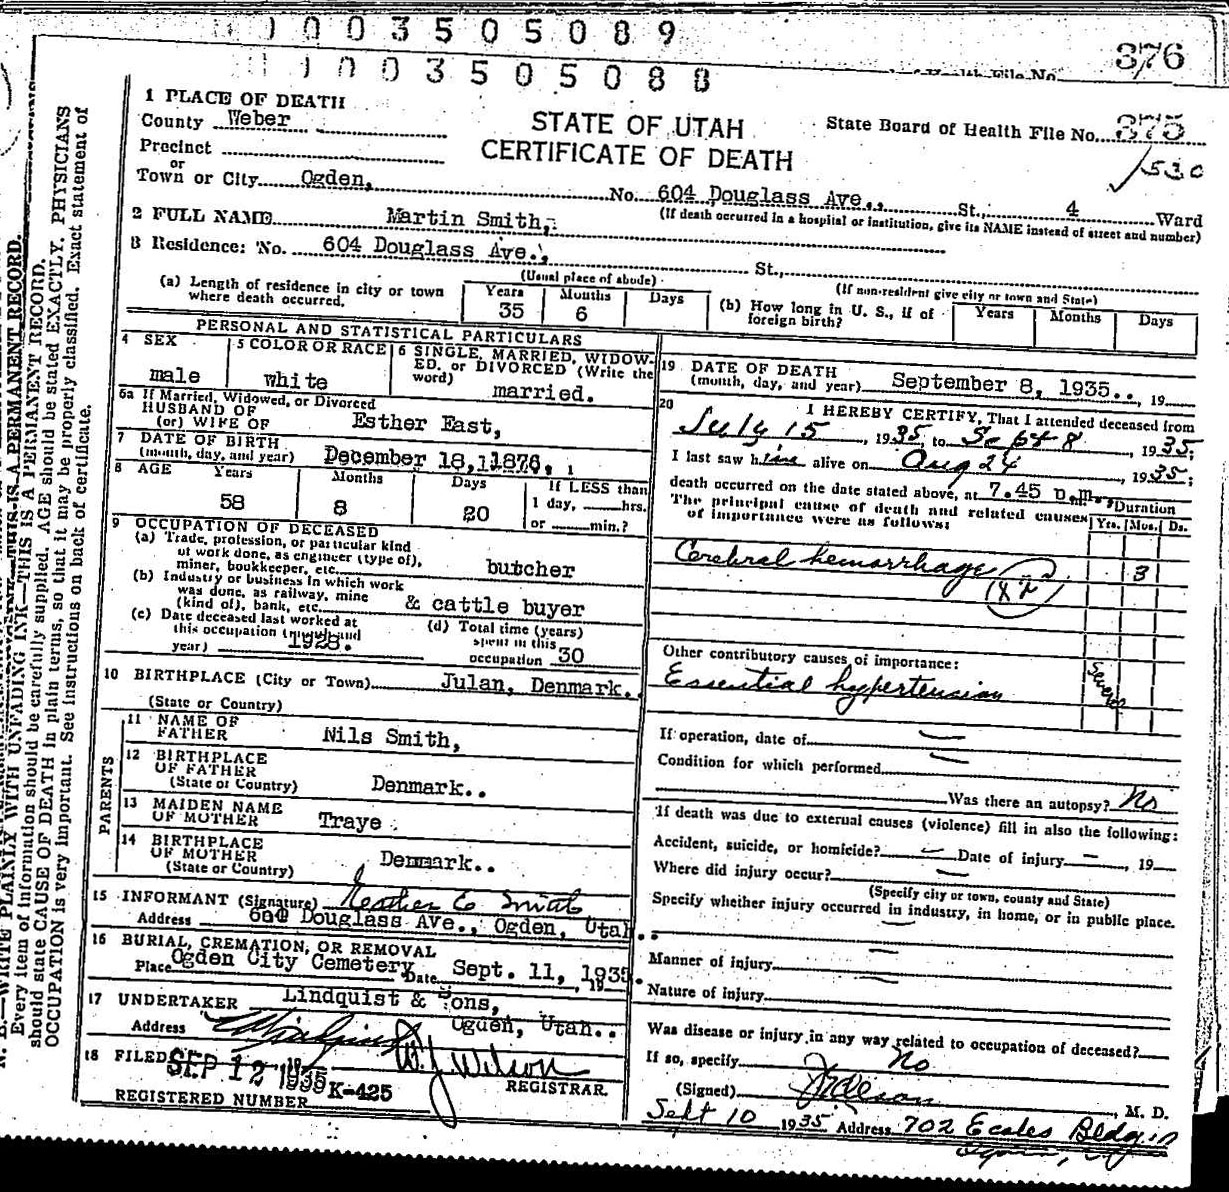 1 0 0 3 5 0 5 0 8 9
1 0 0 3 5 0 5 0 8 8
376
of Health File No.
1 PLACE OF DEATH
County Weber
STATE OF UTAH
CERTIFICATE OF DEATH
State Board of Health File No. 375
1530
Precinct
or
Town or City Ogden, No. 604 Douglass Ave., St., 4 Ward
(If death occurred in a hospital or institution, give its NAME instead of street and number)
2 FULL NAME Martin Smith,
3 Residence: No. 604 Douglass Ave., St.,
(Usual place of abode)
(If non-resident give city or town and State)
(a) Length of residence in city or town where death occurred. Years 35 Months 6 Days
(b) How long in U. S., if of foreign birth? Years Months Days
PERSONAL AND STATISTICAL PARTICULARS
4 SEX male
5 COLOR OR RACE white
6 SINGLE, MARRIED, WIDOWED, or DIVORCED (Write the word) married.
6a If Married, Widowed, or Divorced
HUSBAND OF
(or) WIFE OF Esther East,
7 DATE OF BIRTH
(month, day, and year) December 18, 1876.
8 AGE Years 58 Months 8 Days 20
If LESS than
1 day, hrs.
or min.?
9 OCCUPATION OF DECEASED
(a) Trade, profession, or particular kind
of work done, as engineer (type of),
miner, bookkeeper, etc. butcher
(b) Industry or business in which work
was done, as railway, mine
(kind of), bank, etc. & cattle buyer
(c) Date deceased last worked at
this occupation (month and
year) 1928.
(d) Total time (years)
spent in this
occupation 30
10 BIRTHPLACE (City or Town) Julan, Denmark.
(State or Country)
PARENTS
11 NAME OF
FATHER Nils Smith,
12 BIRTHPLACE
OF FATHER
(State or Country) Denmark..
13 MAIDEN NAME
OF MOTHER Traye
14 BIRTHPLACE
OF MOTHER
(State or Country) Denmark..
15 INFORMANT (Signature) E Smith
Address 604 Douglass Ave., Ogden, Utah..
16 BURIAL, CREMATION, OR REMOVAL
Place Ogden City Cemetery Date Sept. 11, 1935.
17 UNDERTAKER Lindquist & Sons,
Address Ogden, Utah..
18 FILED SEP 12 1935 W. J. Wilson
REGISTRAR.
REGISTERED NUMBER K-425
19 DATE OF DEATH
(month, day, and year) September 8, 1935.., 19
20 I HEREBY CERTIFY, That I attended deceased from
July 15, 1935, to Sept 8, 1935;
I last saw him alive on Aug 24, 1935;
death occurred on the date stated above, at 7.45 p.m.
The principal cause of death and related causes
of importance were as follows:
Duration
Yrs. Mos. Ds.
Cerebral hemorrhage 3
82
Other contributory causes of importance:
Essential hypertension
If operation, date of
Condition for which performed
Was there an autopsy? No
If death was due to external causes (violence) fill in also the following:
Accident, suicide, or homicide? Date of injury , 19
Where did injury occur?
(Specify city or town, county and State)
Specify whether injury occurred in industry, in home, or in public place.
Manner of injury
Nature of injury
Was disease or injury in any way related to occupation of deceased?
If so, specify No
(Signed) , M. D.
Sept 10 1935 Address 702 Eccles Bldg
N. B.—WRITE PLAINLY WITH UNFADING INK—THIS IS A PERMANENT RECORD.
Every item of information should be carefully supplied. AGE should be stated EXACTLY. PHYSICIANS
should state CAUSE OF DEATH in plain terms, so that it may be properly classified. Exact statement of
OCCUPATION is very important. See instructions on back of certificate.